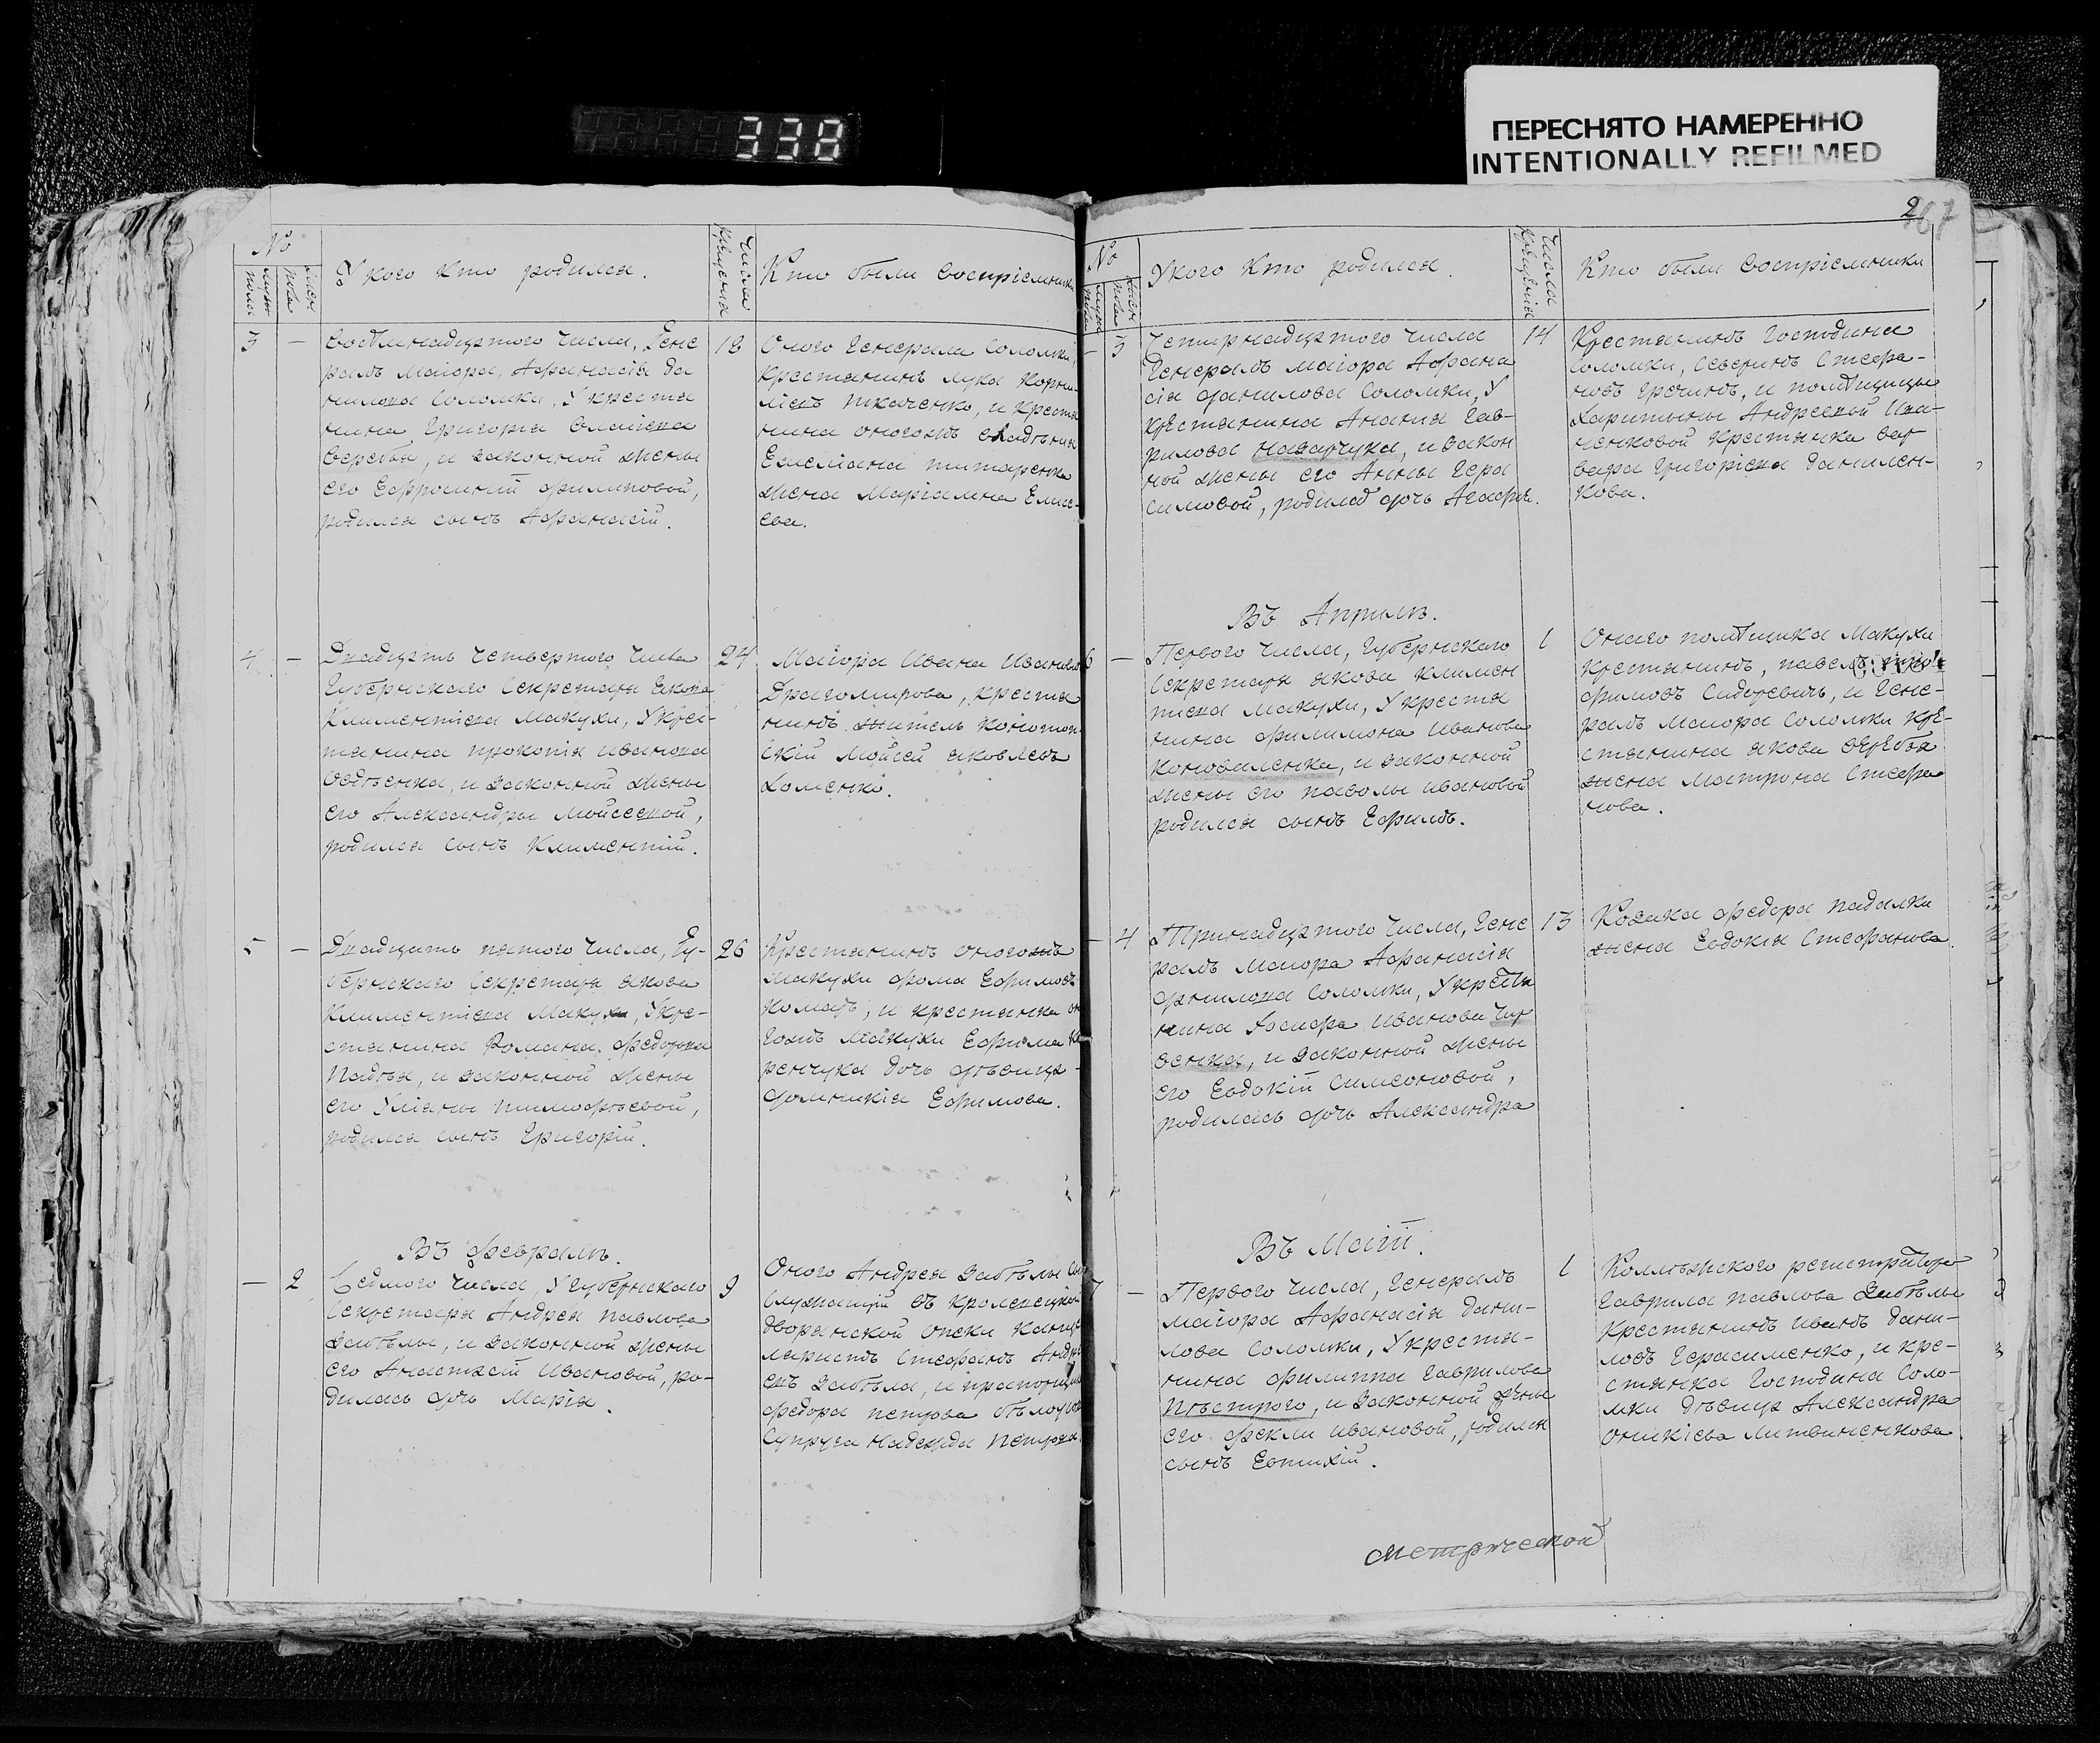 338
ПЕРЕСНЯТО НАМЕРЕННО
INTENTIONALLY REFILMED
267
№
мужс пола
женс пола
У кого кто родился.
Числа крещенія
Кто были Воспріемники
3 — Восемнадцятого Числа, Гене
ралъ Маіора, Афанасія Да
нилова Соломки, У крестя
нина Григорія
Веребъя, и законной жены
его Ефросиніи Филиповой,
родился сынъ Афанасій.
18
Оного Генерала Соломки,
крестянинъ лука Корни-
ліевъ ткаченко, и крестя
нина оногожъ владѣнія
Емеліана титаренка
жена Маріамна Елисе-
ева.
4 — Двадцять четвертого Числа
Губернского Секретаря Якова
Климентіева Макухи, У крес-
тянина прокопія иванова
Овдѣенка, и законной жены
его Александры Мойсеевой,
родился Сынъ Климентій.
24
Маіора Ивана Иванова
Драгомирова, крестя
нинъ житель конотоп-
скій Мойсей яковлевъ
Хоменко.
5 — Двадцать пятого Числа, Гу-
бернского Секретаря якова
Климентіева Макухи, У кре-
стянина Романа Федорова
Падъя, и законной жены
его Уліяны тимофѣевой,
родился сынъ Григорій.
26
Крестянинъ оногожъ
Макухи фома Ефимовъ
комаръ, и крестянка он
гожъ Макухи Ефима
ренчука дочь дѣвица
Домникія Ефимова.
Въ Февралѣ.
— 2 Седмого Числа, У Губернского
Секретаря Андрея павлова
Забѣлы, и законной жены
его Анастасіи Ивановой, ро-
дилась дочь Марія.
9
Оного Андрея Забѣлы сынъ
Служащій въ Кролевецкой
дворянской опеки Канце
ляристъ Стефанъ Андре
евъ Забѣла, и прапорщика
Федора петрова бѣлоус
Супруга Надежда Петрова.
№
мужс пола
женс пола
У кого кто родился.
Числа крещенія
Кто были Воспріемники
— 3 Четирнадцятого Числа
Генералъ маіора Афана
сія Данилова Соломки, У
крестянина Анания Гав-
рилова Назарчука, и закон
ной жены его Анны Гера
симовой, родилась дочь Агафія.
14
Крестянинъ Господина
Соломки, Северинъ Стефа-
новъ Гречинъ, и помѣщицы
Харитыны Андреевой Ива-
ненковой крестянка вар
вара Григоріева Данилен-
кова.
Въ Априлѣ.
6 — Первого Числа, Губернского
Секретаря якова климен
тіева Макухи, У крестя
нина Филимона Иванова
Коноваленка, и законной
жены его паволы ивановой
родился сынъ Ефимъ.
1
Оного помѣщика Макухи
крестянинъ, павелъ
фимовъ Сидоревичъ, и Гене-
ралъ Маиора Соломки кре-
стянина якова веребъя
жена Матрона Стефа
нова.
— 4 Тринадцятого Числа, Гене
ралъ Маиора Афанасія
Данилова Соломки, У крестя
нина Іосифа Иванова Чир
венка, и законной жены
его Евдокіи Симеоновой,
родилась дочь Александра
13
Козака федора падалки
жена Евдокія Стефанова.
Въ Маіи.
7 — Первого Числа, Генералъ
маіора Афанасія Дани-
лова Соломки, У крестя-
нина Филиппа Гаврилова
Пѣстрого, и Законной жены
его Феклы ивановой, родился
сынъ Евтихій.
1
Коллѣжского регистратора
Гаврила павлова Забѣлы
Крестянинъ иванъ Дани-
ловъ Герасименко, и кре-
стянка Господина Соло-
мки дѣвица Александра
Оникіева литвиненкова
метрической